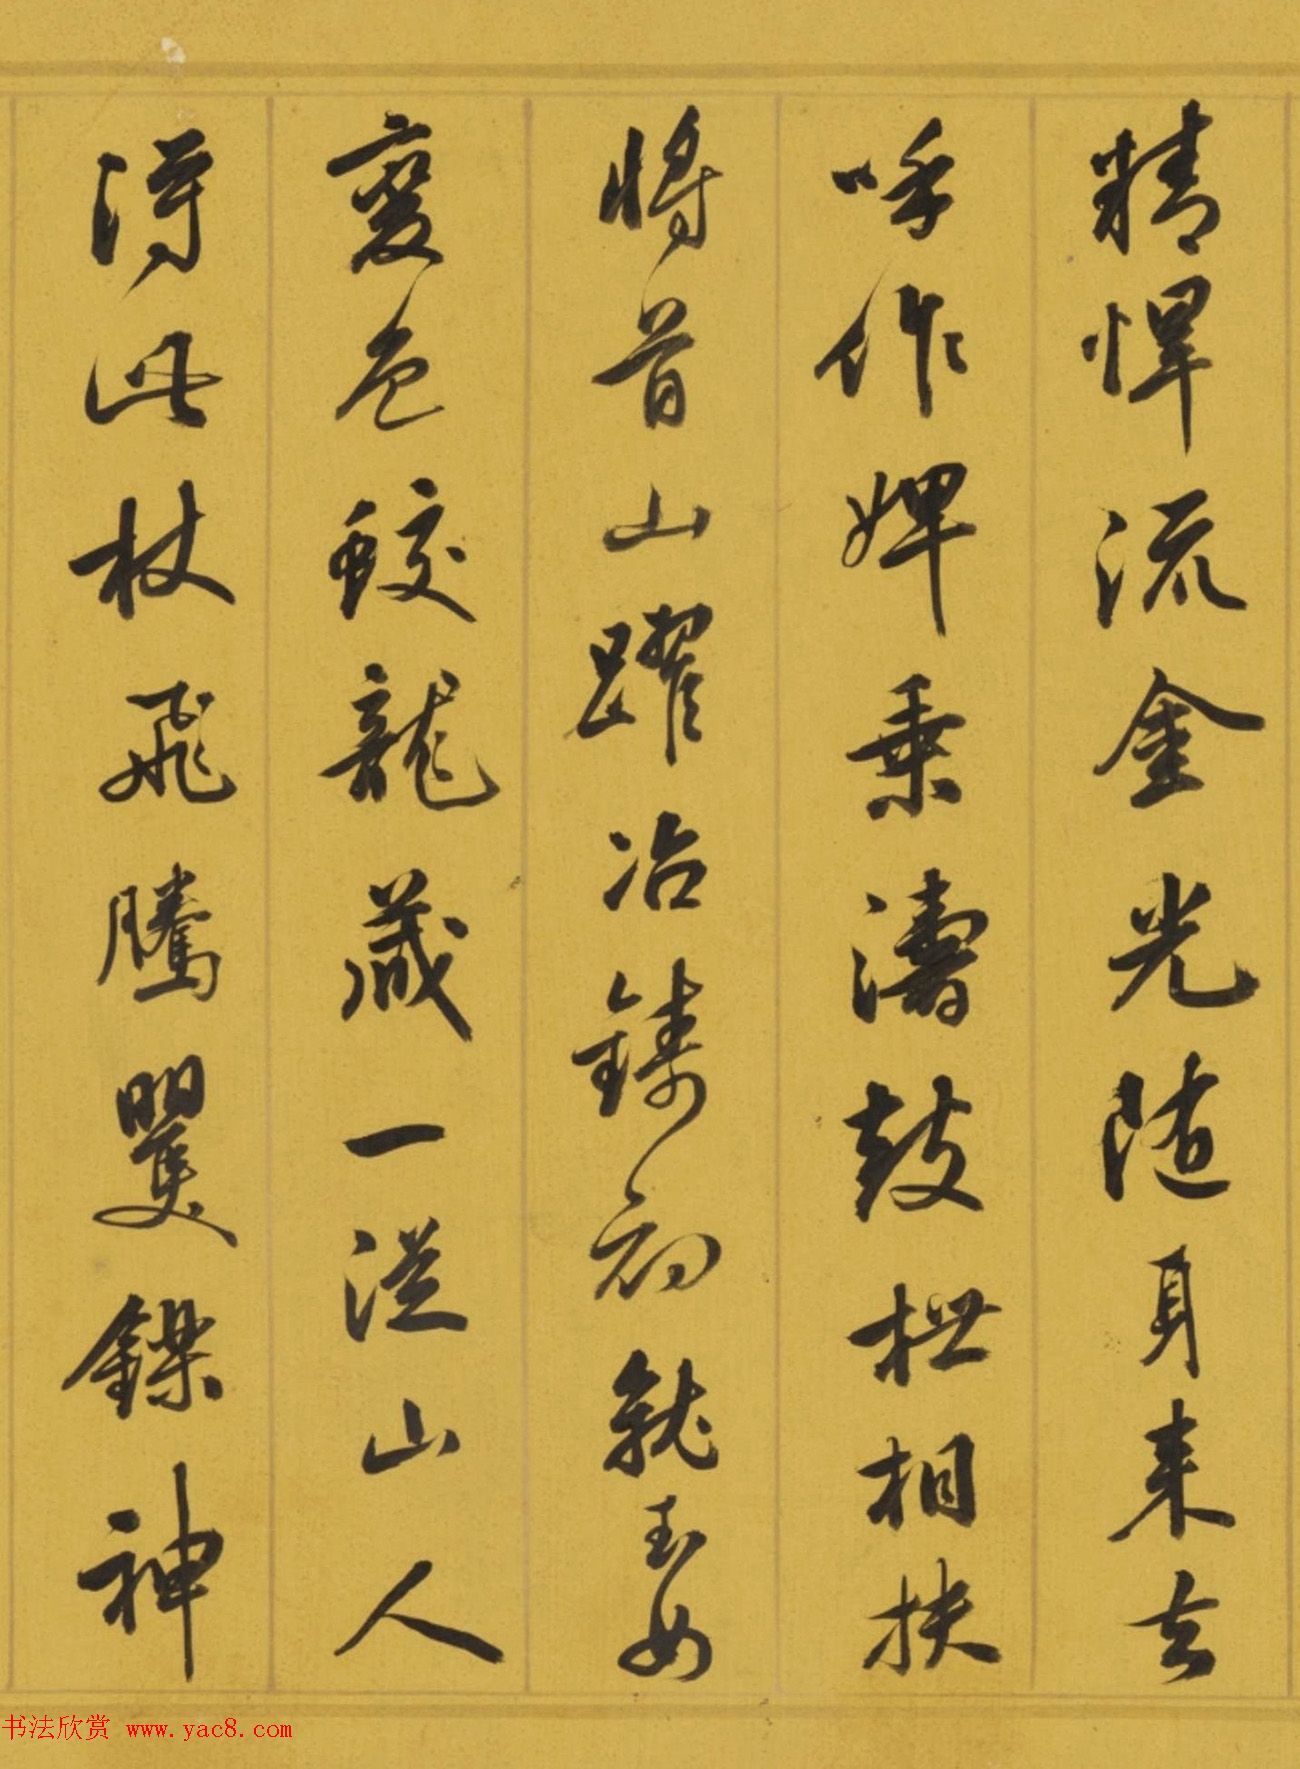 精悍流金光随身来去
呼作婢乘濤鼓枻相扶
將首山躍冶鑄初就玉女
變色蛟龍藏一從山人
得此杖飛騰矍鑠神
书法欣赏 www.yac8.com